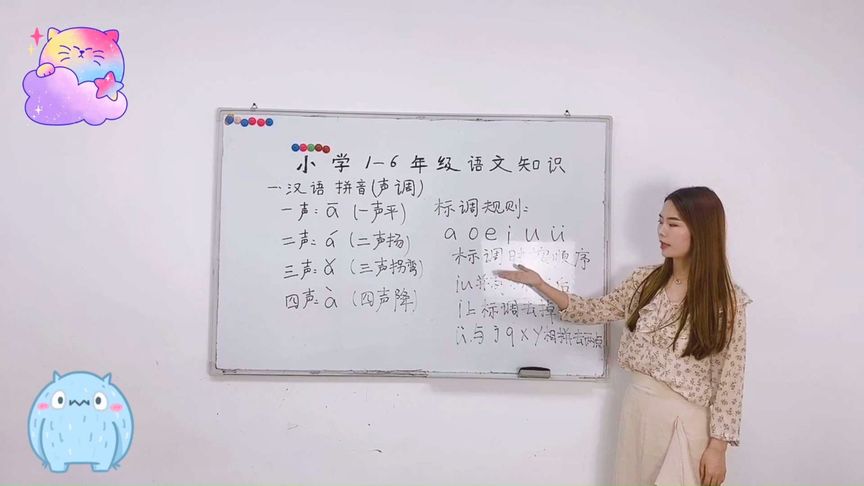 小学1-6年级语文知识
一.汉语拼音(声调)
一声:ā(一声平)
二声:á(二声扬)
三声:ǎ(三声拐弯)
四声:à(四声降)
标调规则:
a o e i u ü
标调时 顺序
iu
i上标调去掉
ü与j q x y 去两点